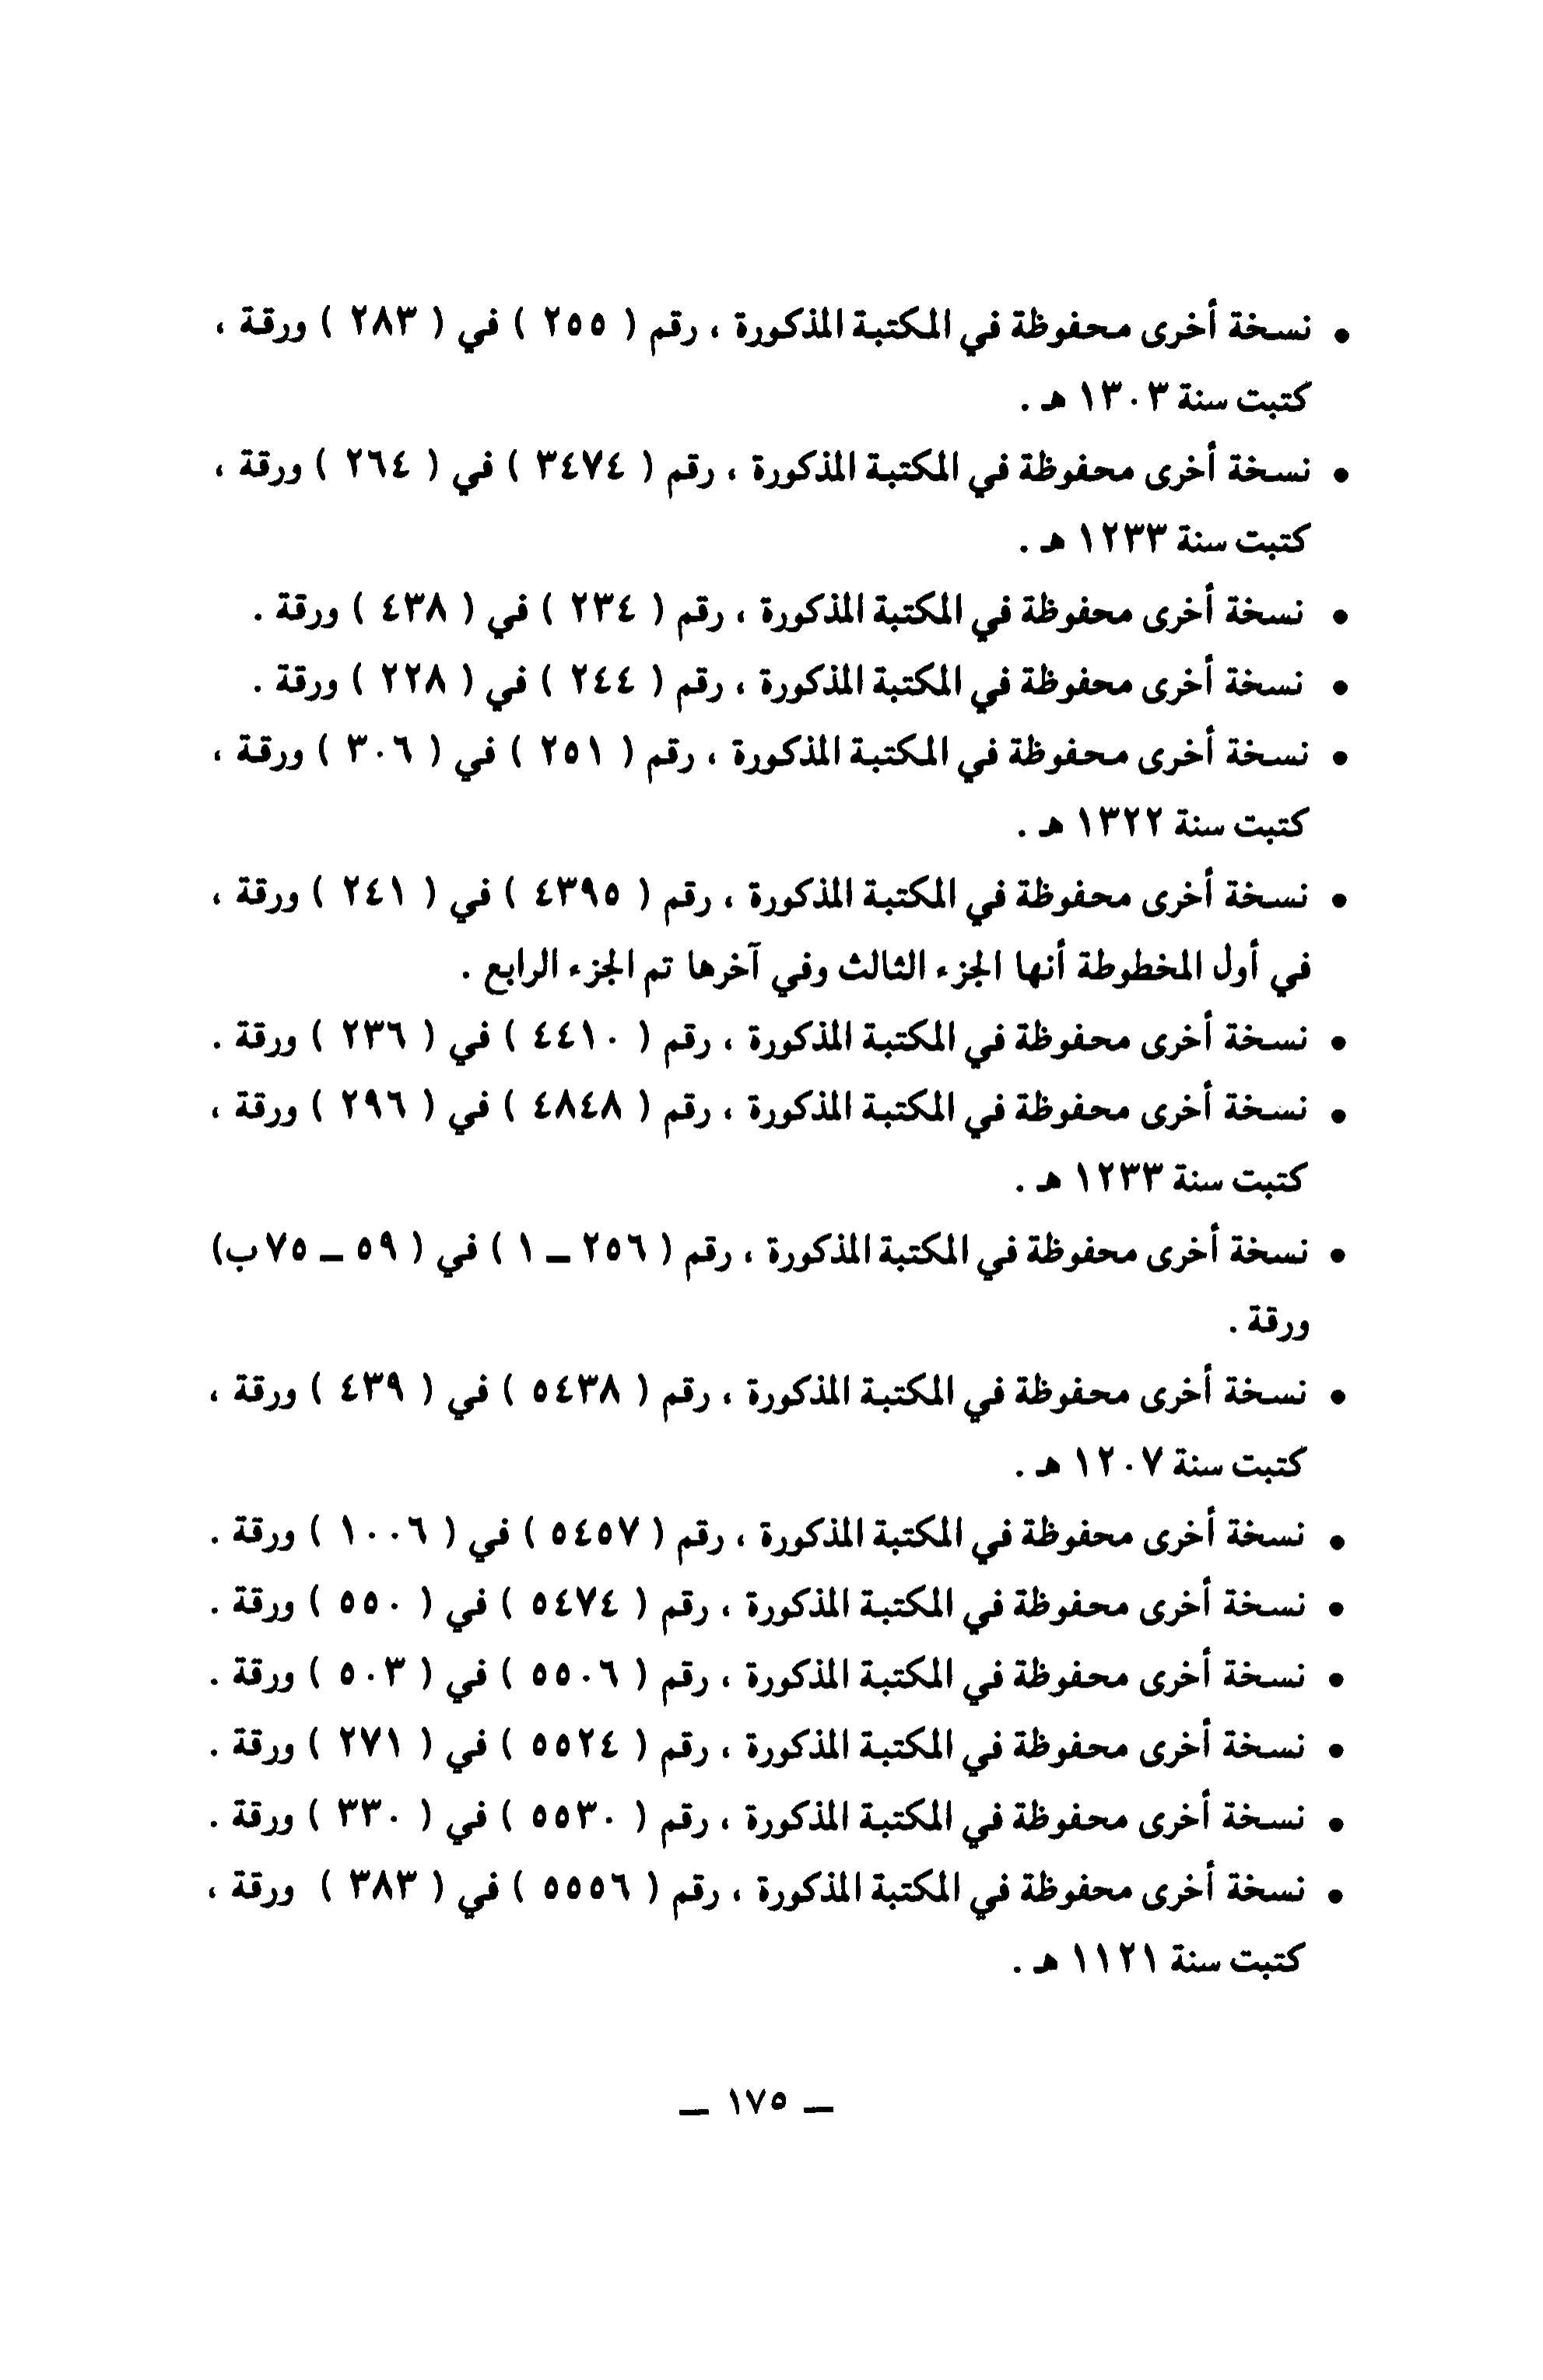 • نسخة أخرى محفوظة في المكتبة المذكورة ، رقم ( ٢٥٥ ) في ( ٢٨٣ ) ورقة ،
كتبت سنة ١٣٠٣ هـ .
• نسخة أخرى محفوظة في المكتبة المذكورة ، رقم ( ٣٤٧٤ ) في ( ٢٦٤ ) ورقة ،
كتبت سنة ١٢٣٣ هـ .
• نسخة أخرى محفوظة في المكتبة المذكورة ، رقم ( ٢٣٤ ) في ( ٤٣٨ ) ورقة .
• نسخة أخرى محفوظة في المكتبة المذكورة ، رقم ( ٢٤٤ ) في ( ٢٢٨ ) ورقة .
• نسخة أخرى محفوظة في المكتبة المذكورة ، رقم ( ٢٥١ ) في ( ٣٠٦ ) ورقة ،
كتبت سنة ١٣٢٢ هـ .
• نسخة أخرى محفوظة في المكتبة المذكورة ، رقم ( ٤٣٩٥ ) في ( ٢٤١ ) ورقة ،
في أول المخطوطة أنها الجزء الثالث وفي آخرها تم الجزء الرابع .
• نسخة أخرى محفوظة في المكتبة المذكورة ، رقم ( ٤٤١٠ ) في ( ٢٣٦ ) ورقة .
• نسخة أخرى محفوظة في المكتبة المذكورة ، رقم ( ٤٨٤٨ ) في ( ٢٩٦ ) ورقة ،
كتبت سنة ١٢٣٣ هـ .
• نسخة أخرى محفوظة في المكتبة المذكورة ، رقم ( ٢٥٦ ــ ١ ) في ( ٥٩ ــ ٧٥ب)
ورقة .
• نسخة أخرى محفوظة في المكتبة المذكورة ، رقم ( ٥٤٣٨ ) في ( ٤٣٩ ) ورقة ،
كتبت سنة ١٢٠٧ هـ .
• نسخة أخرى محفوظة في المكتبة المذكورة ، رقم ( ٥٤٥٧ ) في ( ١٠٠٦ ) ورقة .
• نسخة أخرى محفوظة في المكتبة المذكورة ، رقم ( ٥٤٧٤ ) في ( ٥٥٠ ) ورقة .
• نسخة أخرى محفوظة في المكتبة المذكورة ، رقم ( ٥٥٠٦ ) في ( ٥٠٣ ) ورقة .
• نسخة أخرى محفوظة في المكتبة المذكورة ، رقم ( ٥٥٢٤ ) في ( ٢٧١ ) ورقة .
• نسخة أخرى محفوظة في المكتبة المذكورة ، رقم ( ٥٥٣٠ ) في ( ٣٣٠ ) ورقة .
• نسخة أخرى محفوظة في المكتبة المذكورة ، رقم ( ٥٥٥٦ ) في ( ٣٨٣ ) ورقة ،
كتبت سنة ١١٢١ هـ .
ــ ١٧٥ ــ